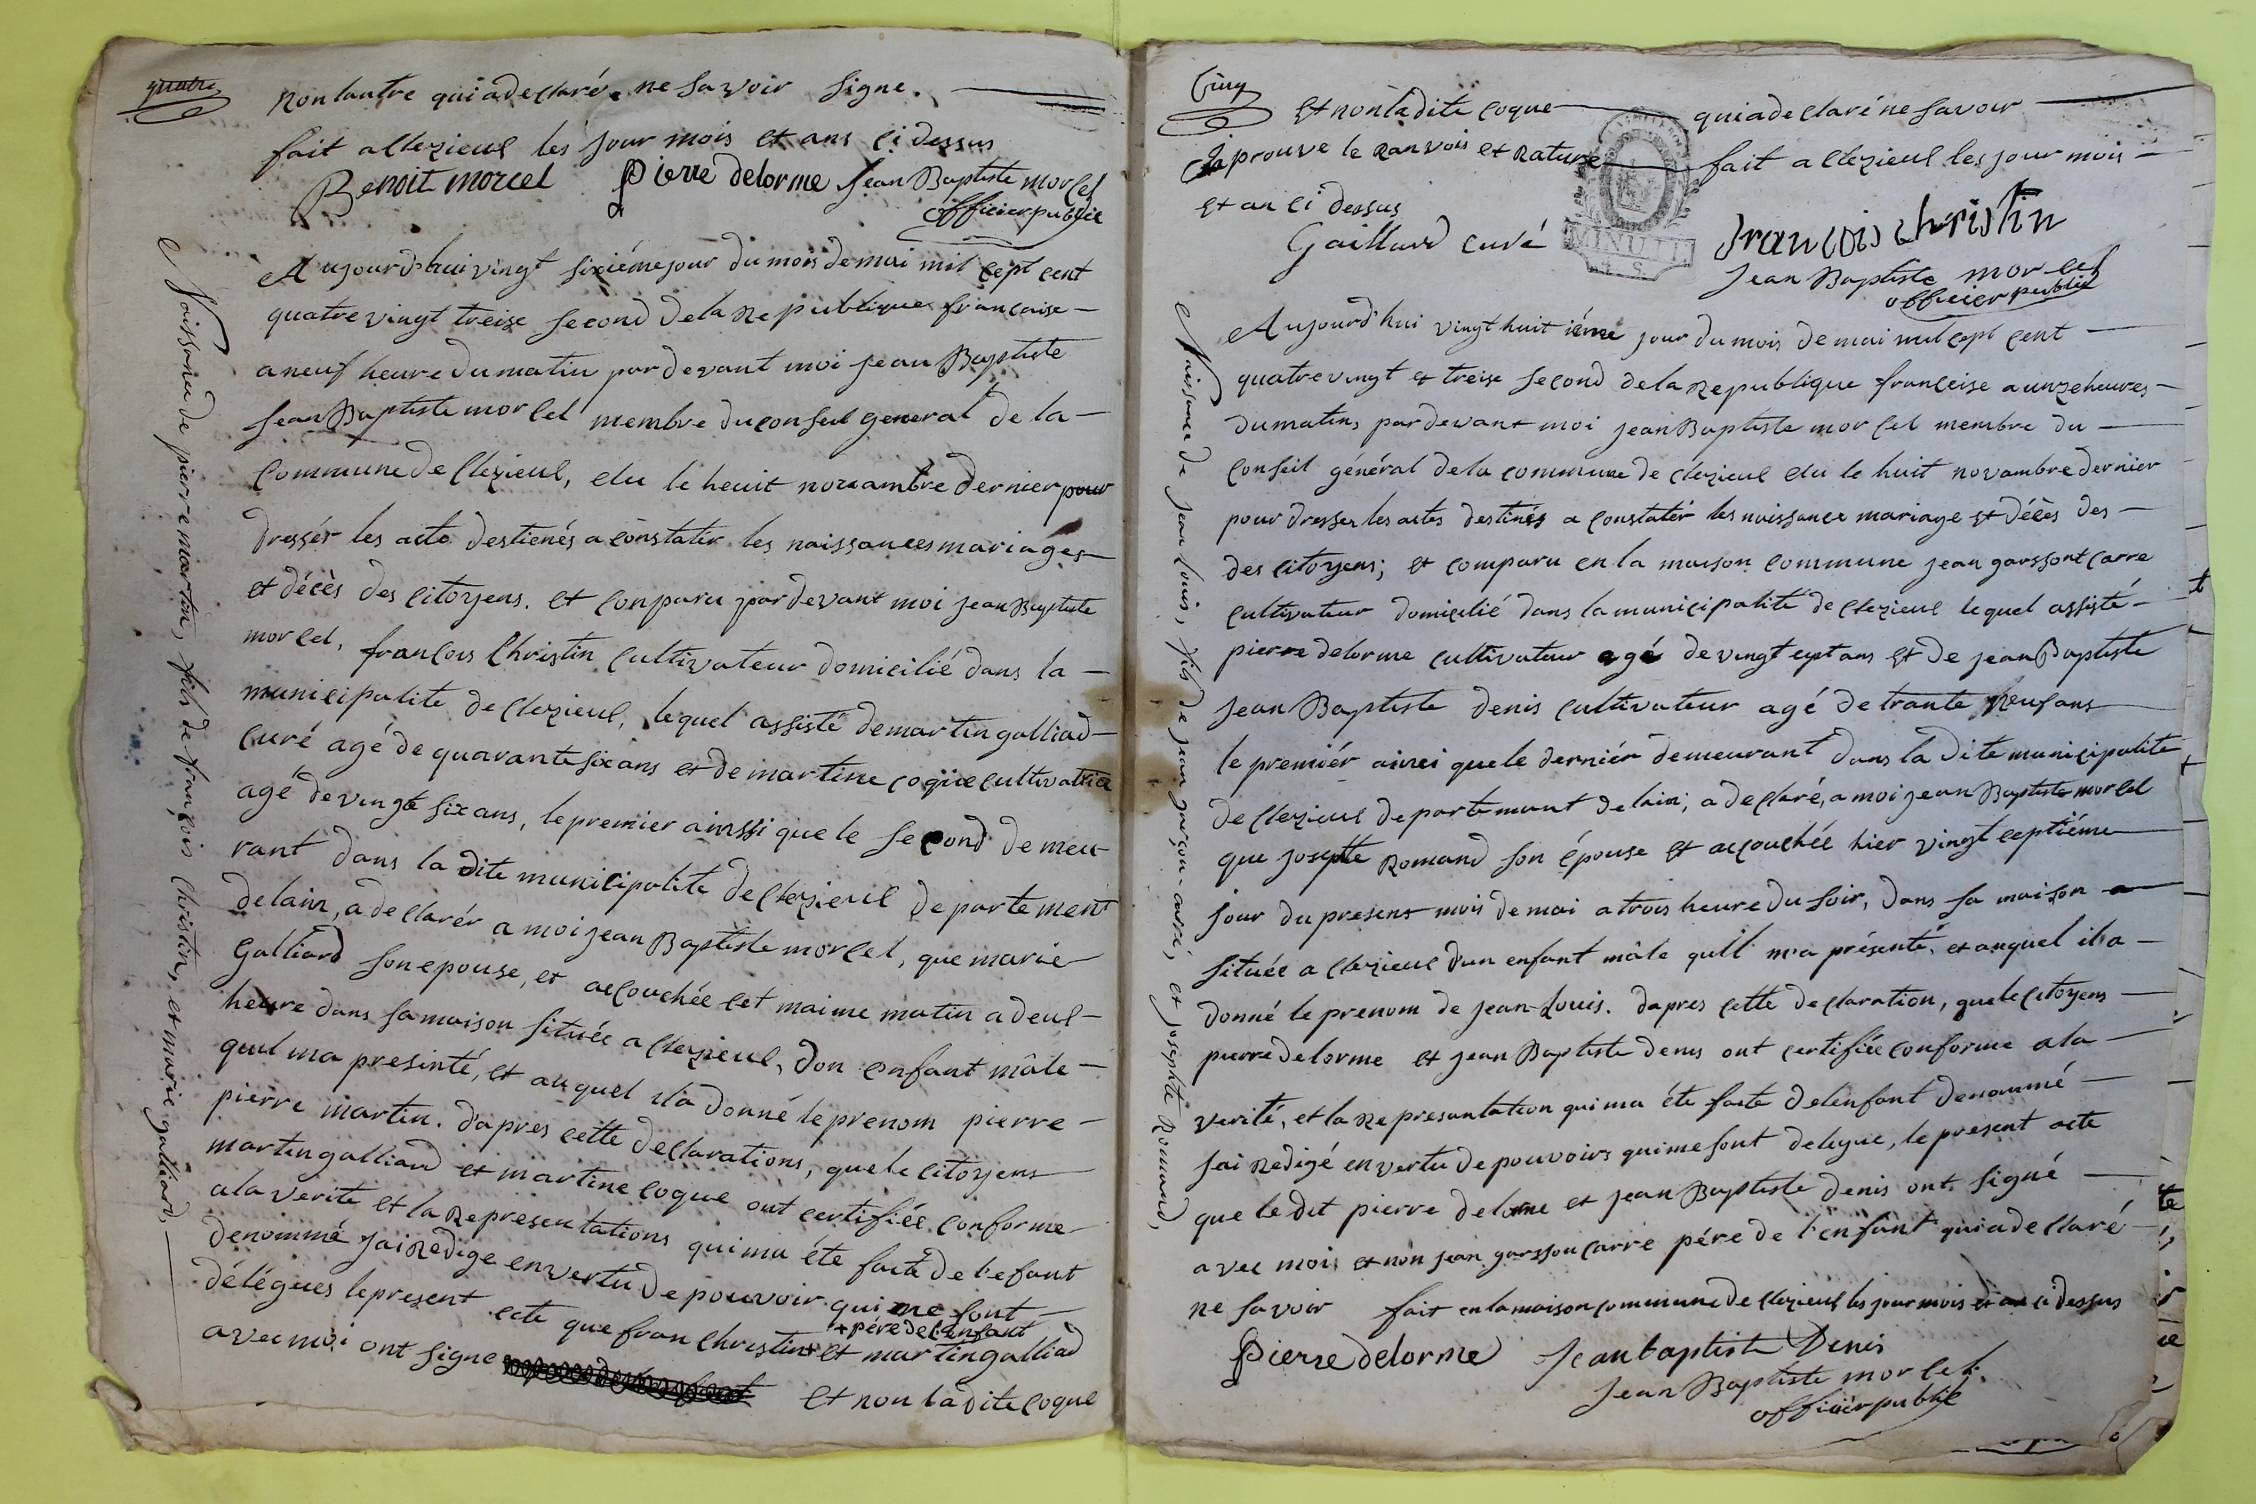 quatre
non lautre qui a declaré ne savoir signe.
fait a Clezieul les jour mois et ans ci dessus
Benoit morcel Pierre delorme Jean Baptiste morcel
officier public
Naissance de pierre martin, fils de françois Christin, et marie galliard,
Aujourd'hui vingt sixiéme jour du mois de mai mil cept cent
quatre vingt treise second de la Republique francaise
a neuf heure du matin par devant moi jean Baptiste
jean Baptiste morcel membre du conseil general de la
Commune de Clezieul, elu le heuit novambre dernier pour
dressér les acte destienés a constatér les naissances mariages
et décès des citoyens. et conparu par devant moi jean Baptiste
morcel, francois Christin cultivateur domicilié dans la
municipalite de Clezieul, lequel assisté de martin galliad
curé agé de quarante six ans et de martine coque cultivatrice
agé de vingt six ans, le premier ainssi que le second demeu
rant dans la dite municipalite de Clezieul departement
delain, a declarér a moi jean Baptiste morcel, que marie
Galliard son epouse, et accouchée cet maime matin a deul
heure dans sa maison située a Clezieul, don enfant mâle
quil ma presinté, et auquel il a donné le prenom pierre
pierre martin. dapres cette declarations, que le citoyens
martin galliard et martine coque ont certifiée conforme
a la verite et la Representations qui ma éte faite de l'efant
denommé jai Redige en vertu de pouvoir qui me sont
délégues le present acte que fran Christin + et martin galliad
+ pére de l'enfant
avec moi ont signe et non la dite coque
Cinq
et non la dite coque qui a declaré ne savoir
japrouve le ranvois et rature fait a Clezieul les jour mois
et an ci dessus
Gaillard curé françois christin
MINUIT
Jean Baptiste morcel
officier public
Naissance de jean Louis, fils de jean garçon-carré, et josephte Romand,
Aujourd'hui vingt huit iéme jour du mois de mai mil cept cent
quatre vingt et treise second de la Republique françeise a unze heures
du matins par devant moi jean Baptiste morcel membre du
conseil général de la commune de Clezieul elu le huit novambre dernier
pour dresser les actes destinés a constatér les naissance mariage et décès des
des citoyens; et comparu en la maison commune jean garssont carre
cultivateur domicilié dans la municipalité de Clezieul lequel assisté
pierre delorme cultivateur agé de vingt cept ans et de jean Baptiste
jean Baptiste denis cultivateur agé de trante neuf ans
le premiér ainci que le derniér demeurant dans la dite municipalite
de Clezieul departemant delain, a declaré, a moi jean Baptiste morcel
que josephte Romand son épouse et accouchée hier vingt ceptiéme
jour du present mois de mai a trois heure du soir, dans sa maison
située a Clezieul dun enfant mâle qu'il m'a présenté, et auquel il a
donné le prenom de jean-Louis. dapres cette declaration, que le citoyens
pierre delorme et jean Baptiste denis ont certifiée conforme a la
verité, et la Represantation qui ma éte faite de lenfant denommé
jai Redigé en vertu de pouvoirs qui me sont delegue, le present acte
que le dit pierre delorme et jean Baptiste denis ont signé
avec moi et non jean garssou carre pére de l'enfant qui a declaré
ne savoir fait en la maison commune de Clezieul les jour mois et an ci dessus
Pierre delorme Jean baptiste Denis
Jean Baptiste morcel
officier public